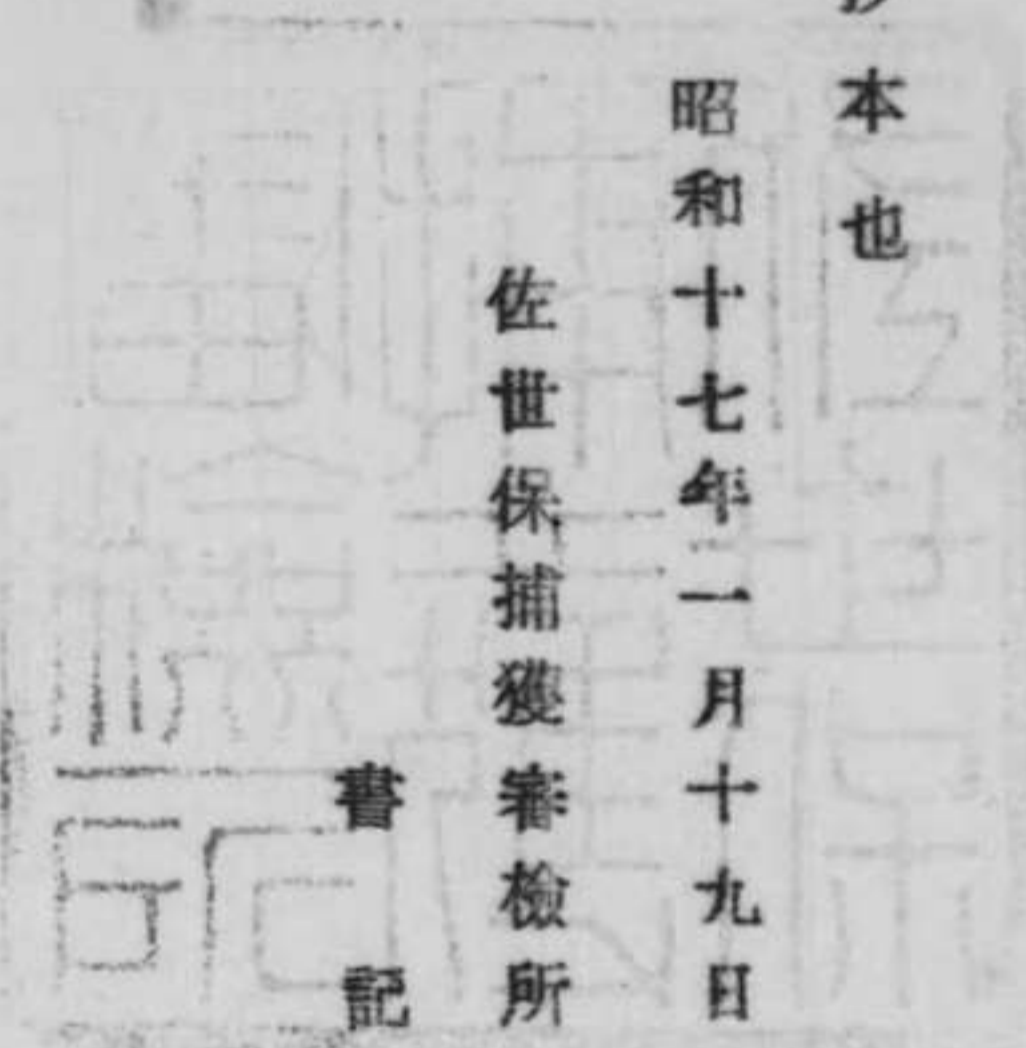 抄本也
昭和十七年一月十九日
佐世保捕獲審檢所
書記